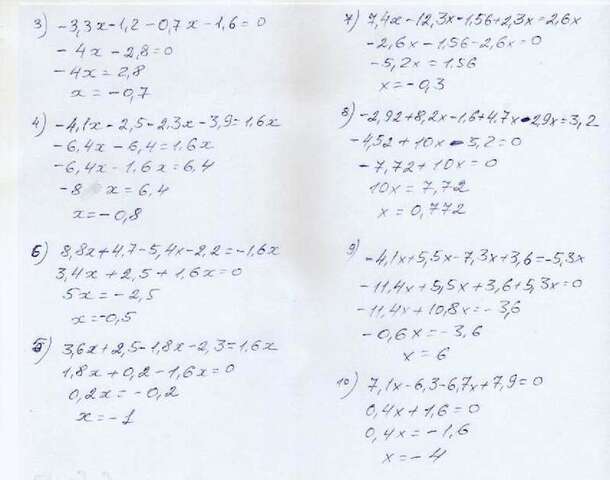 3) -3,3x-1,2-0,7x-1,6=0
-4x-2,8=0
-4x=2,8
x=-0,7
4) -4,1x-2,5-2,3x-3,9=1,6x
-6,4x-6,4=1,6x
-6,4x-1,6x=6,4
-8 x=6,4
x=-0,8
6) 8,8x+4,7-5,4x-2,2=-1,6x
3,4x+2,5+1,6x=0
5x=-2,5
x=-0,5
5) 3,6x+2,5-1,8x-2,3=1,6x
1,8x+0,2-1,6x=0
0,2x=-0,2
x=-1
7) 7,4x-12,3x-1,56+2,3x=2,6x
-2,6x-1,56-2,6x=0
-5,2x=1,56
x=-0,3
8) -2,92+8,2x-1,6+4,7x-2,9x=3,2
-4,52+10x-3,2=0
-7,72+10x=0
10x=7,72
x=0,772
9) -4,1x+5,5x-7,3x+3,6=-5,3x
-11,4x+5,5x+3,6+5,3x=0
-11,4x+10,8x=-3,6
-0,6x=-3,6
x=6
10) 7,1x-6,3-6,7x+7,9=0
0,4x+1,6=0
0,4x=-1,6
x=-4